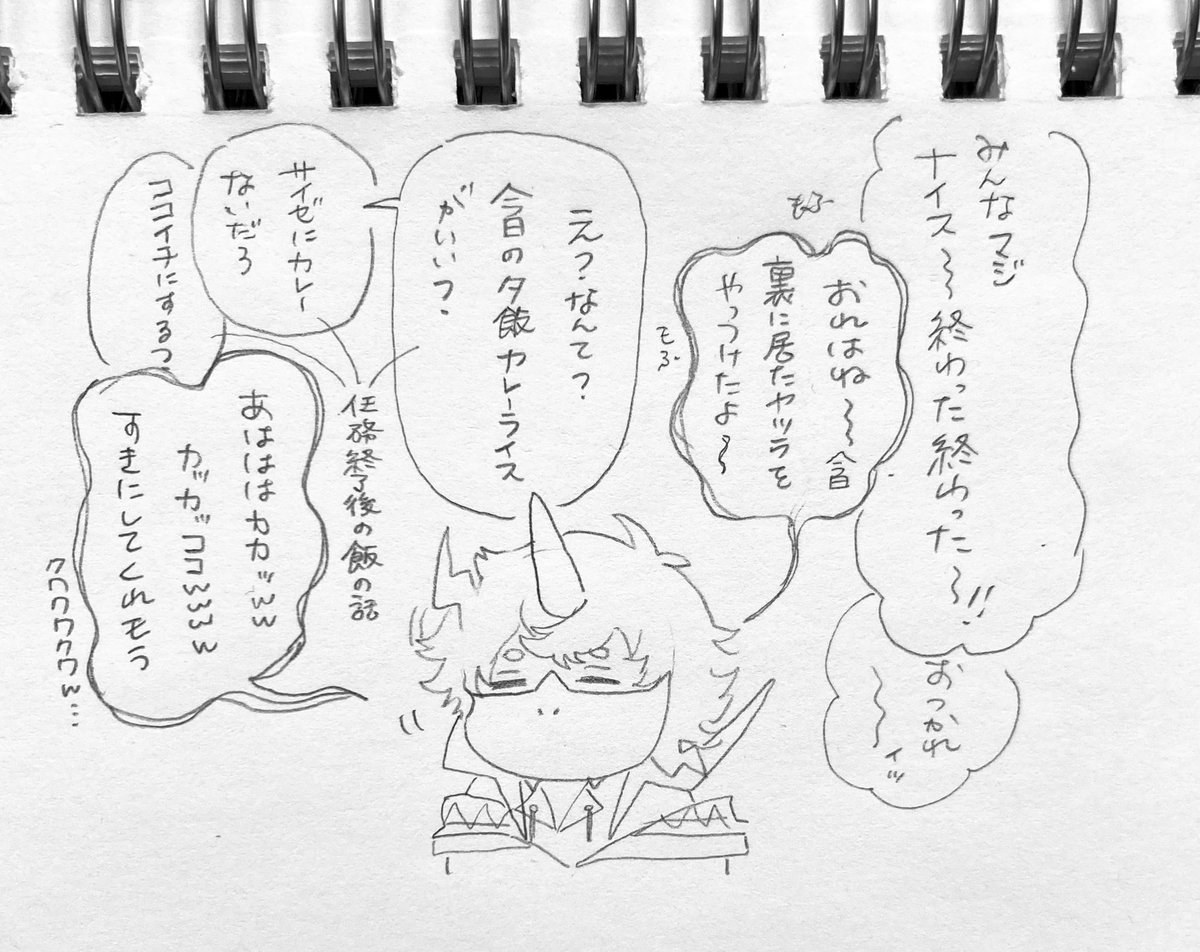 みんなマジ
ナイス〜〜終わった終わった〜!!
おつかれ
〜〜ィッ
もふ
おれはね〜〜今
裏に居たヤツラを
やっつけたよ〜
モふ
え?なんて?
今日の夕飯カレーライス
がいい?
サイゼにカレー
ないだろ
ココイチにするっ
任務終了後の飯の話
あははははカカッwww
カッカッココwwww
すきにしてくれモう
ククククククw…